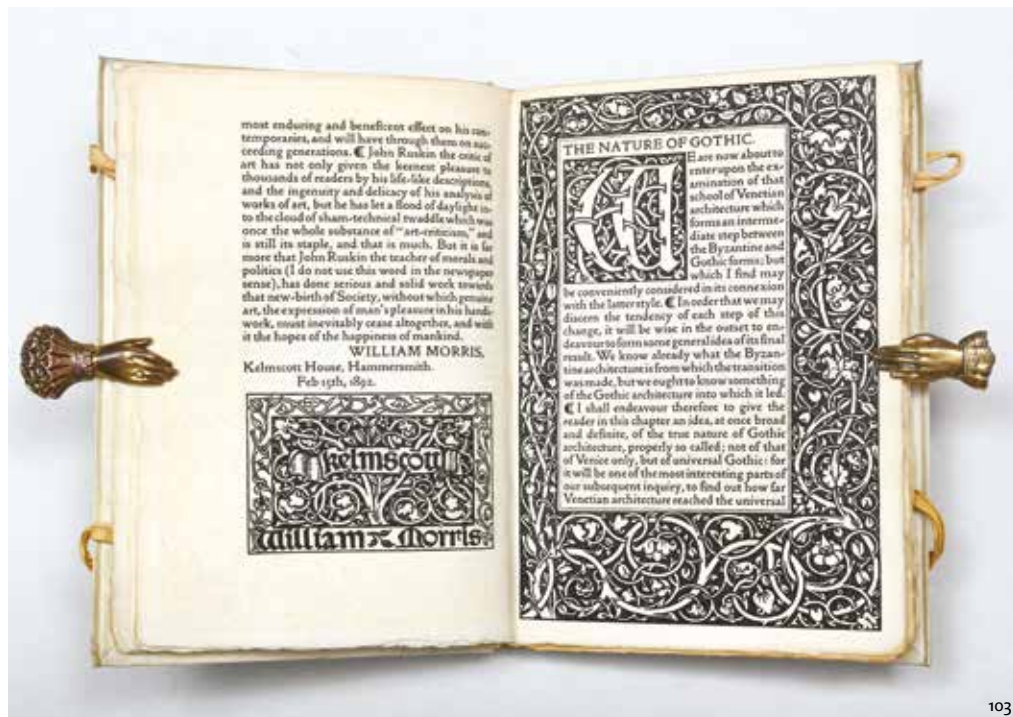 most enduring and beneficent effect on his con-
temporaries, and will have through them on suc-
ceeding generations. ¶ John Ruskin the critic of
art has not only given the keenest pleasure to
thousands of readers by his life-like descriptions,
and the ingenuity and delicacy of his analysis of
works of art, but he has let a flood of daylight in-
to the cloud of sham-technical twaddle which was
once the whole substance of "art-criticism," and
is still its staple, and that is much. But it is far
more that John Ruskin the teacher of morals and
politics (I do not use this word in the newspaper
sense), has done serious and solid work towards
that new-birth of Society, without which genuine
art, the expression of man's pleasure in his handi-
work, must inevitably cease altogether, and with
it the hopes of the happiness of mankind.
WILLIAM MORRIS.
Kelmscott House, Hammersmith.
Feb 15th, 1892.
Kelmscott
William Morris
THE NATURE OF GOTHIC.
WE are now about to
enter upon the ex-
amination of that
school of Venetian
architecture which
forms an interme-
diate step between
the Byzantine and
Gothic forms; but
which I find may
be conveniently considered in its connexion
with the latter style. ¶ In order that we may
discern the tendency of each step of this
change, it will be wise in the outset to en-
deavour to form some general idea of its final
result. We know already what the Byzan-
tine architecture is from which the transition
was made, but we ought to know something
of the Gothic architecture into which it led.
¶ I shall endeavour therefore to give the
reader in this chapter an idea, at once broad
and definite, of the true nature of Gothic
architecture, properly so called; not of that
of Venice only, but of universal Gothic: for
it will be one of the most interesting parts of
our subsequent inquiry, to find out how far
Venetian architecture reached the universal
103